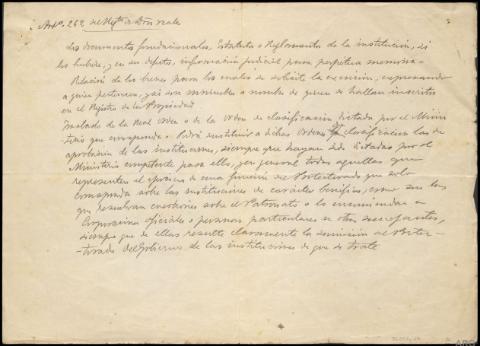 Artº. 262 del Regto. de Dros reales
Los documentos fundacionales, Estatutos o Reglamento de la institución, si
los hubiere, y en su defecto, información judicial para perpetua memoria
Relación de los bienes para los cuales se solicite la exención, expresando
a quien pertenecen, y a su nombre o nombre de quien se hallan inscritos
en el Registro de la Propiedad
Traslado de la Real orden o de la orden de clasificación dictada por el Minis
terio que corresponda - Podrá sustituir a dichas ordenes de clasificación las de
aprobación de las instituciones, siempre que hayan sido dictadas por el
Ministerio competente para ello, y en general todas aquellas que
representen el ejercicio de una función del Protectorado que solo
corresponda sobre las instituciones de carácter benéfico, como son las
que resuelvan cuestiones sobre el Patronato o lo encomiendan a
Corporaciones oficiales o personas particulares u otras
siempre que de ellas resulte claramente la sumisión al Protec-
-torado del Gobierno de las instituciones de que se trate